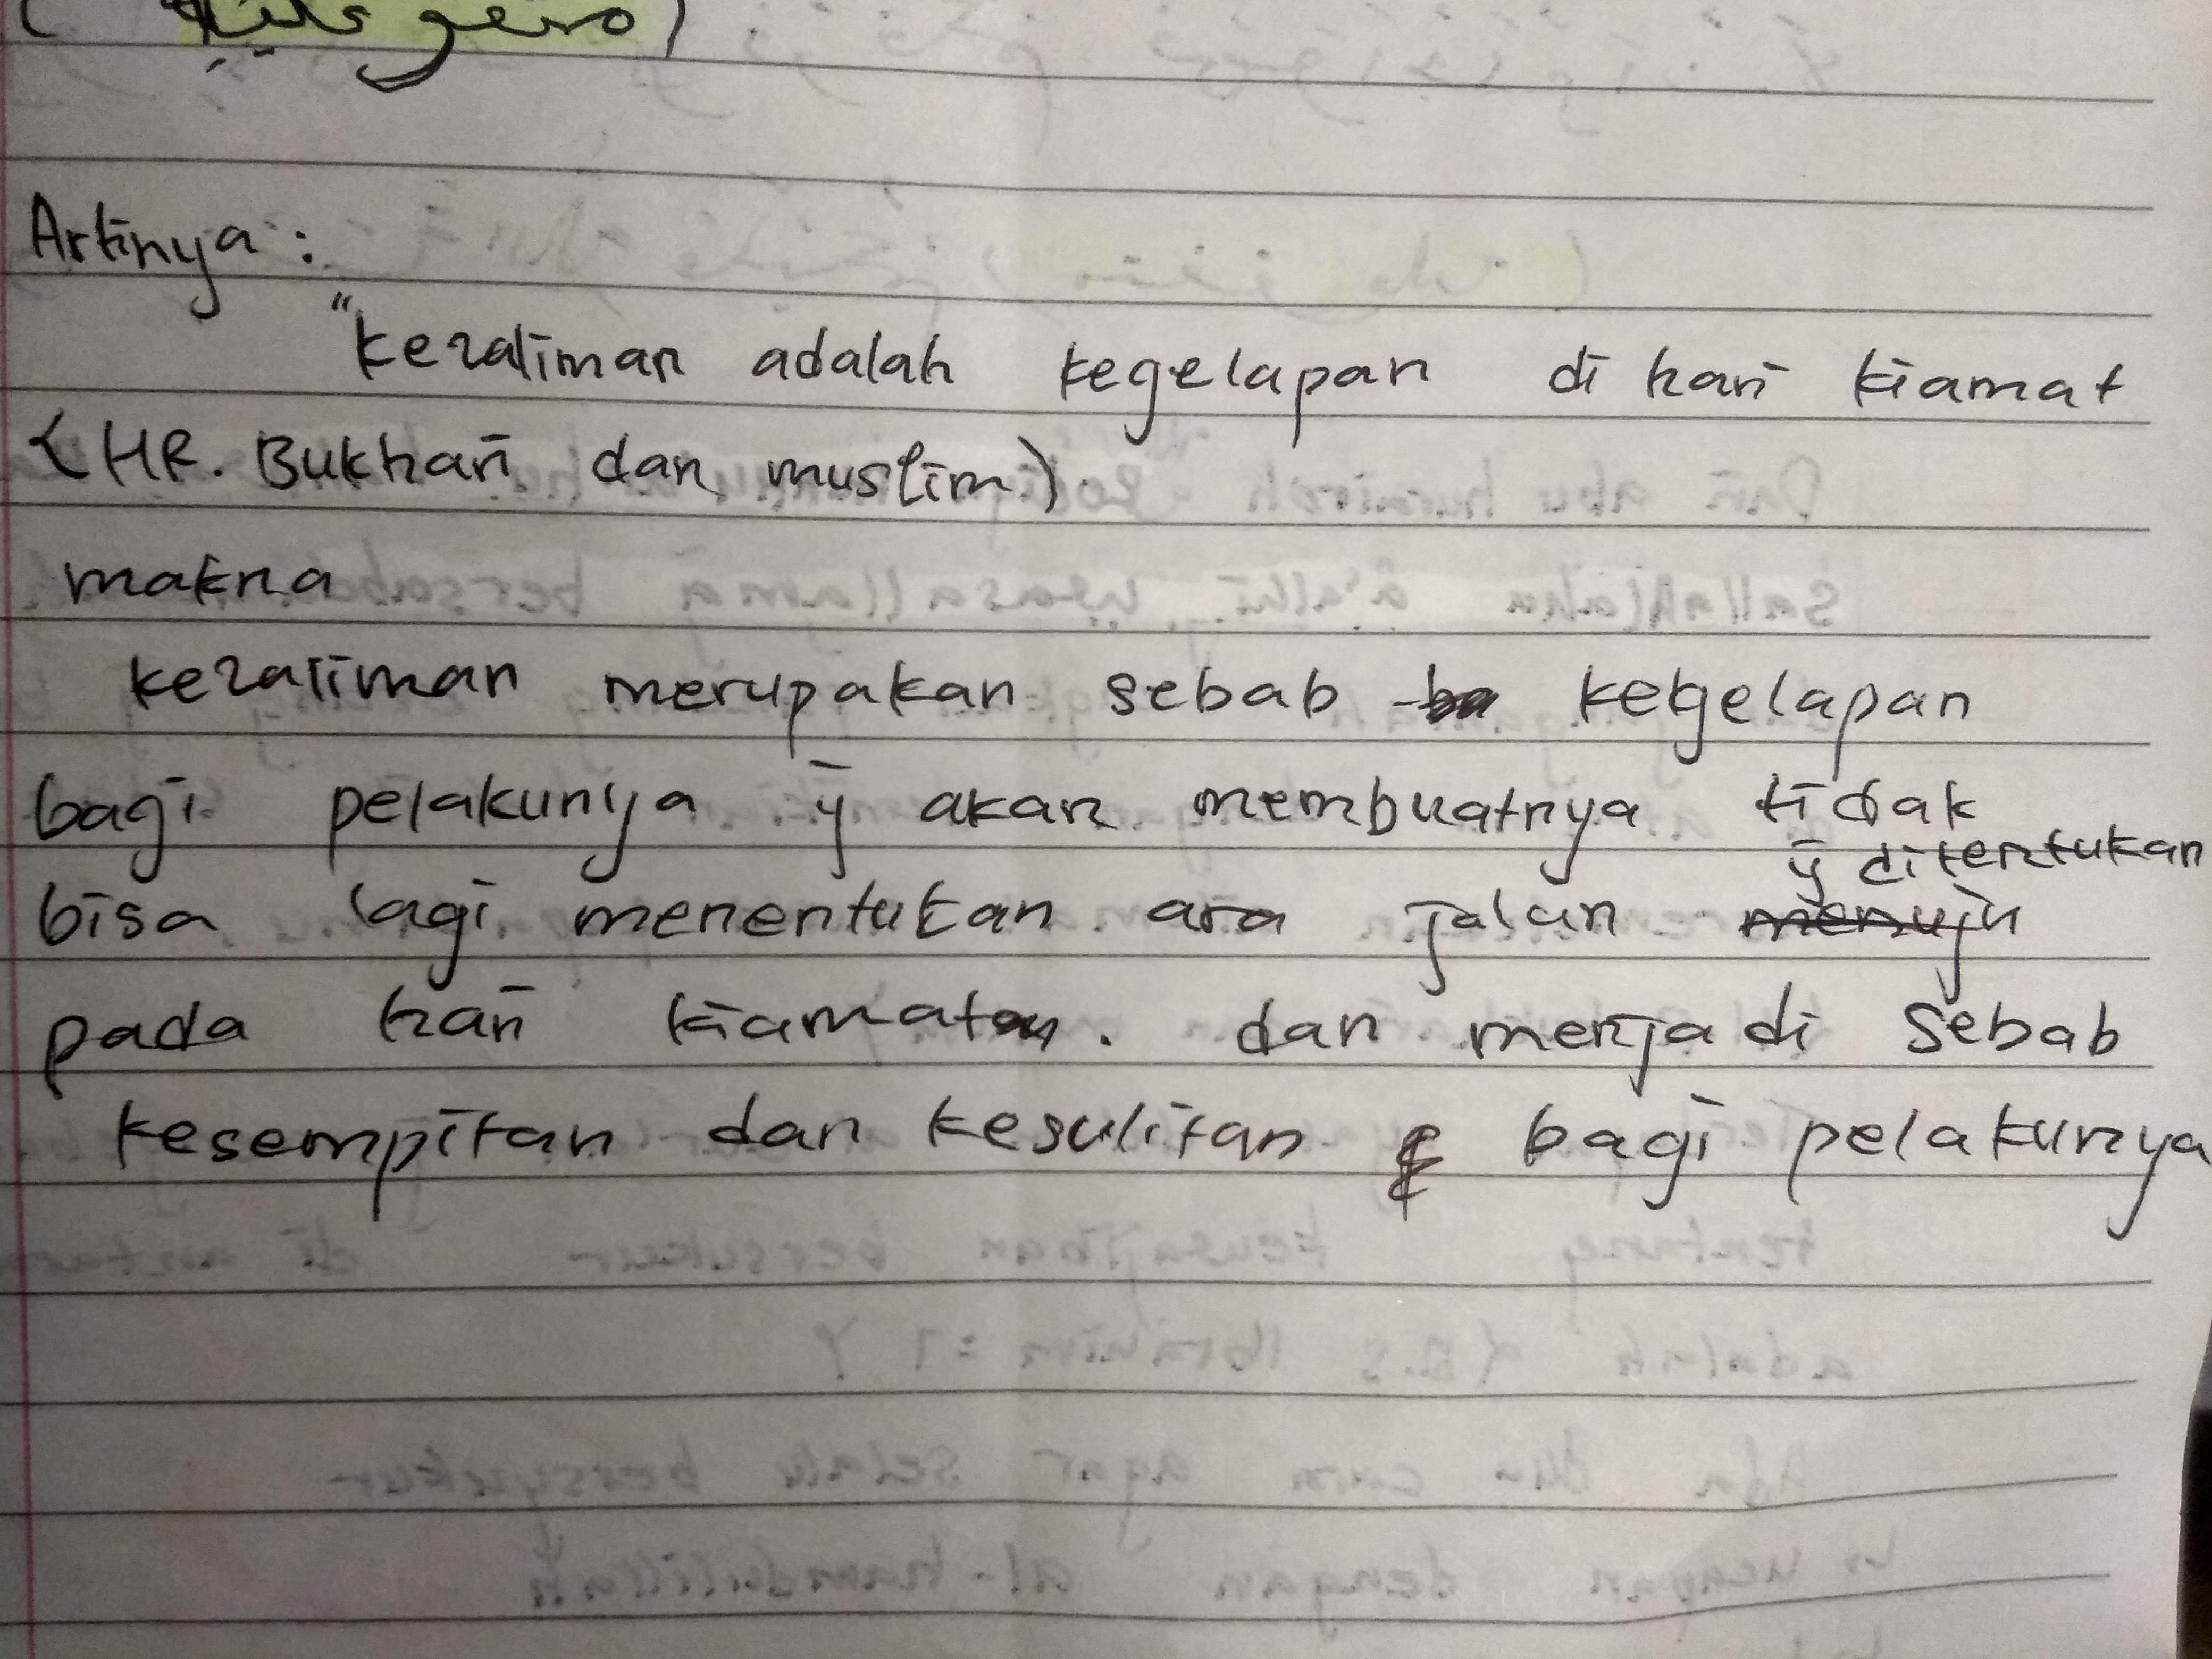 Artinya :
"kezaliman adalah kegelapan di hari kiamat
(HR. Bukhari dan muslim).
makna
kezaliman merupakan sebab kegelapan
bagi pelakunya ȳ akan membuatnya tidak
ȳ ditentukan
bisa lagi menentukan ara jalan menuju
pada hari kiamat. dan menjadi sebab
kesempitan dan kesulitan bagi pelakunya